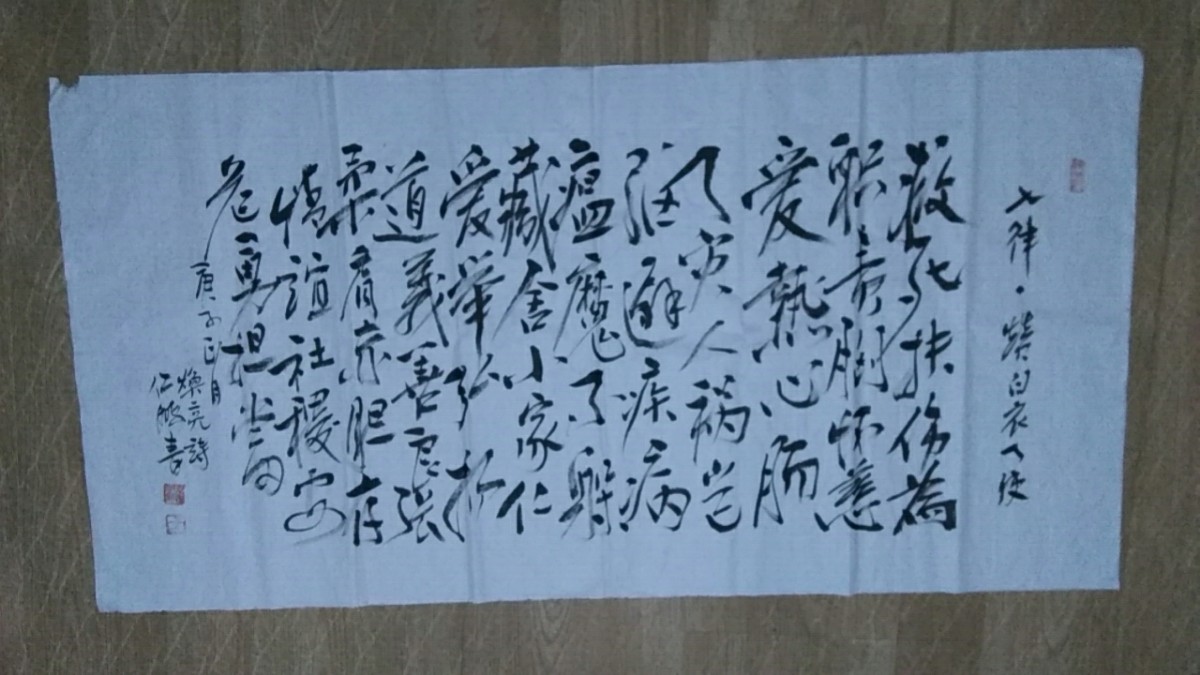 七律·赞白衣天使
救死扶伤为
职责胸怀慈
爱热心肠
天灾人祸岂
避疾病
瘟魔不躲
藏舍小家仁
爱举弘扬
道义善良张
柔肩赤胆存
情谊社稷安
危勇担当
庚子正月
焕亮诗